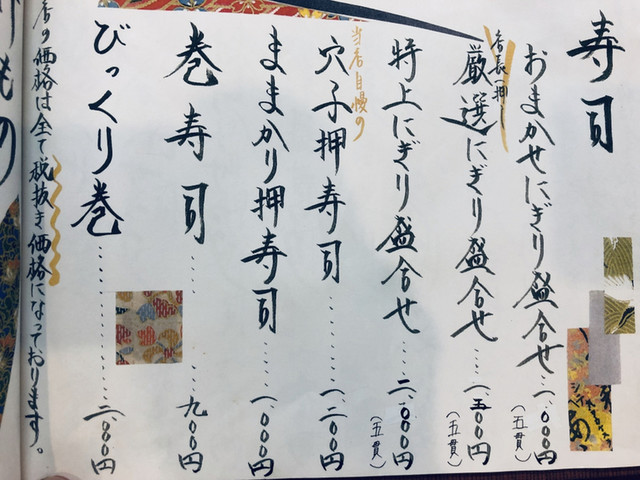 寿司
おまかせにぎり盛合せ…一、000円
(五貫)
店長一押し
厳選にぎり盛合せ…一、五00円
(五貫)
特上にぎり盛合せ…二、000円
(五貫)
当店自慢の
穴子押寿司……一、二00円
ままかり押寿司……一、000円
巻寿司……九00円
びっくり巻…………二、000円
当店の価格は全て税抜き価格になっております。